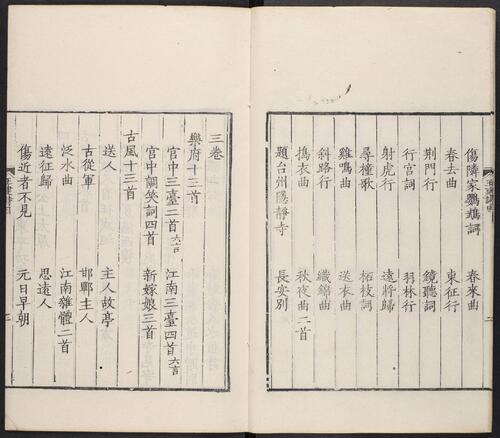 傷隣家鸚鵡詞 春來曲
春去曲 東征行
荆門行 鏡聽詞
行宫詞 羽林行
射虎行 遠將歸
尋橦歌 柘枝詞
雞鳴曲 送衣曲
斜路行 織錦曲
搗衣曲 秋夜曲二首
題台州隱静寺 長安别
三卷
樂府十三首
宫中三臺二首六言 江南三臺四首六言
宫中調笑詞四首 新嫁娘三首
古風十三首
送人 主人故亭
古從軍 邯鄲主人
泛水曲 江南雜體二首
遠征歸 思遠人
傷近者不見 元日早朝